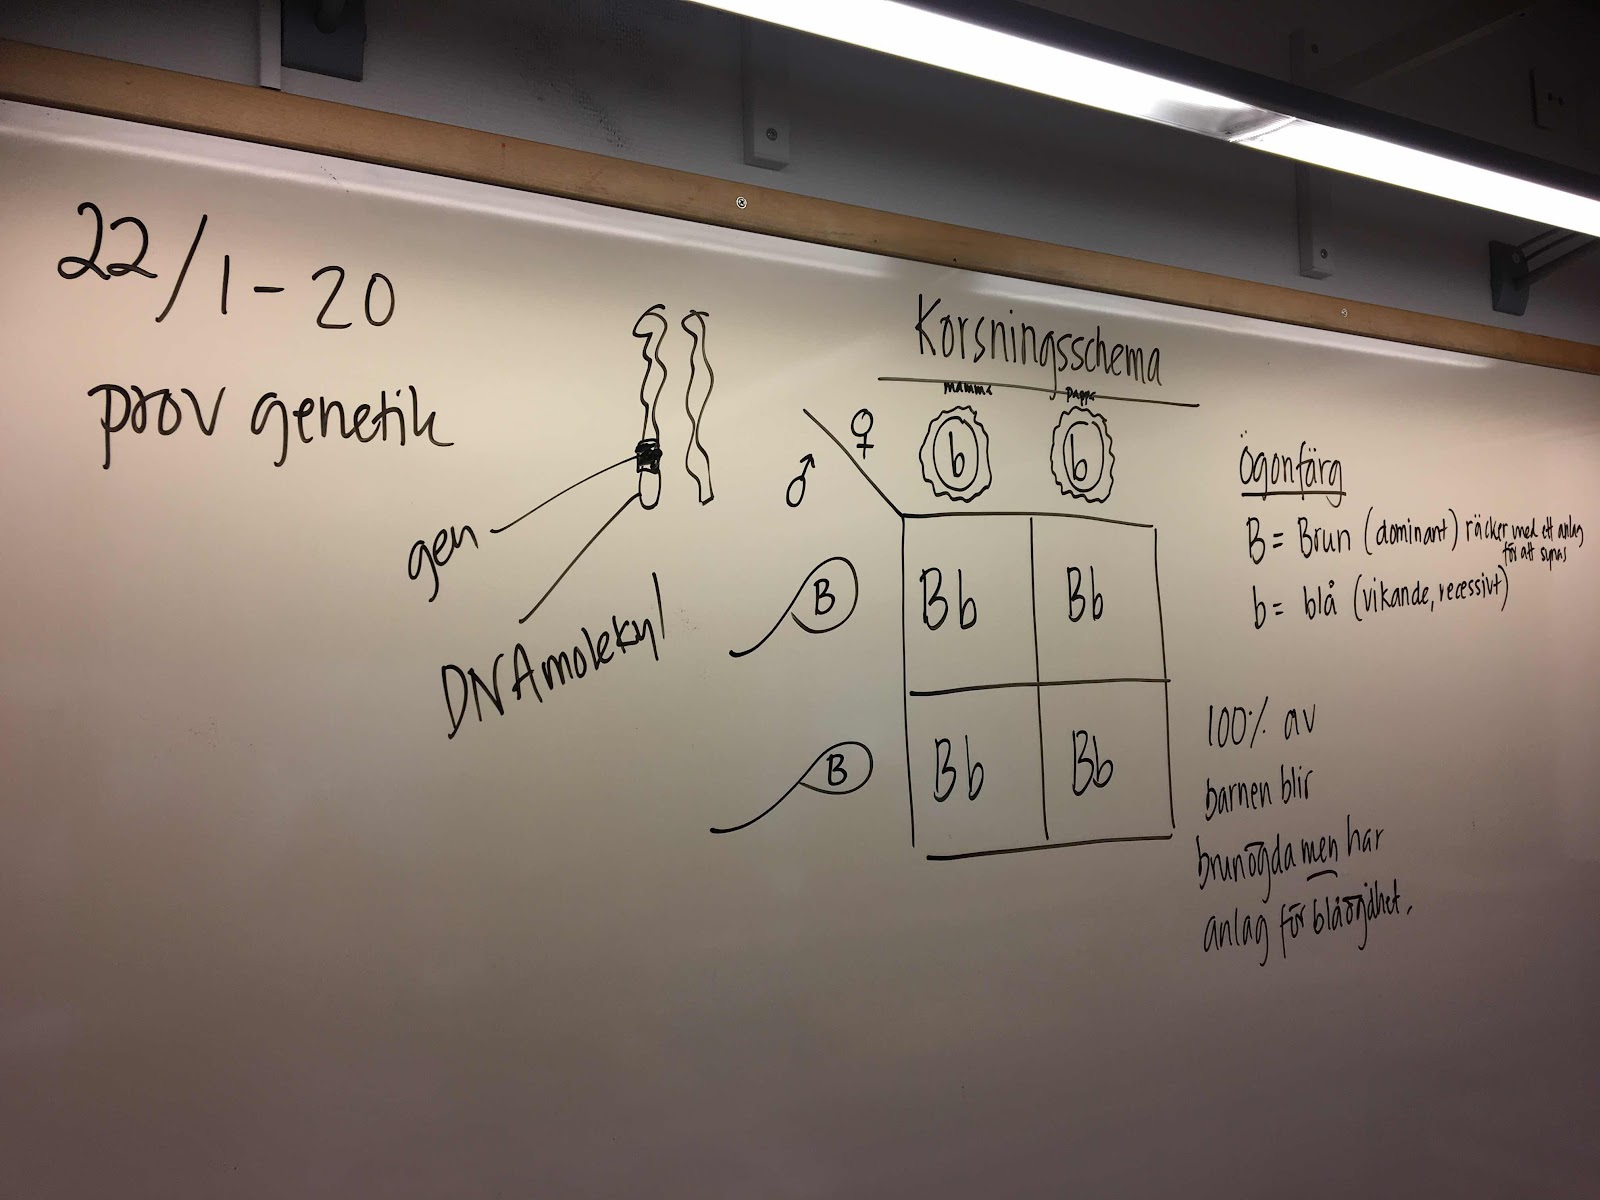 22/1-20
prov genetik
gen
DNAmolekyl
Korsningsschema
mamma pappa
♀ b b
♂
B Bb Bb
B Bb Bb
Ögonfärg
B = Brun (dominant) räcker med ett anlag
för att synas
b = blå (vikande, recessivt)
100% av
barnen blir
brunögda men har
anlag för blåögdhet.